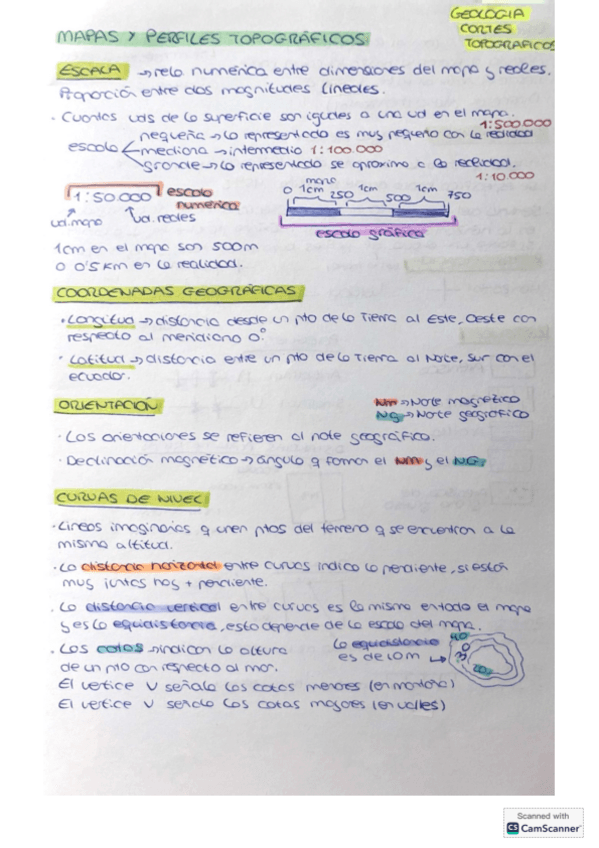 GEOLOGIA
CORTES
TOPOGRAFICOS
MAPAS Y PERFILES TOPOGRÁFICOS
ESCALA → rela numérica entre dimensiones del mapa y reales.
Proporción entre dos magnitudes lineales.
· Cuantas uds de la superficie son iguales a una ud en el mapa.
1:500000
pequeña → lo representado es muy pequeño con la realidad
escala mediana → intermedio 1:100.000
grande → lo representado se aproxima a la realidad.
1:10.000
1:50000 escala numérica
ud mapa ud. reales
mapa
0 1cm 250 1cm 500 1cm 750
escala gráfica
1cm en el mapa son 500m
o 0'5 km en la realidad.
COORDENADAS GEOGRÁFICAS
· Longitud → distancia desde un pto de la Tierra al Este, Oeste con
respecto al meridiano 0°
· Latitud → distancia entre un pto de la Tierra al Norte, Sur con el
ecuador.
ORIENTACIÓN
Nm → Norte magnético
NG → Norte geográfico
· Las orientaciones se refieren al norte geográfico.
· Declinación magnética → ángulo q forman el NM y el NG.
CURVAS DE NIVEL
· Líneas imaginarias q unen ptos del terreno q se encuentran a la
misma altitud.
· La distancia horizontal entre curvas indica la pendiente, si están
muy juntas hay + pendiente.
· La distancia vertical entre curvas es la misma en todo el mapa
y es la equidistancia, esto depende de la escala del mapa.
· Las cotas → indican la altura
de un pto con respecto al mar.
La equidistancia
es de 10m →
40
30
20
El vertice V señala las cotas menores (en montaña)
El vertice V señala las cotas mayores (en valles)
Scanned with
CS CamScanner